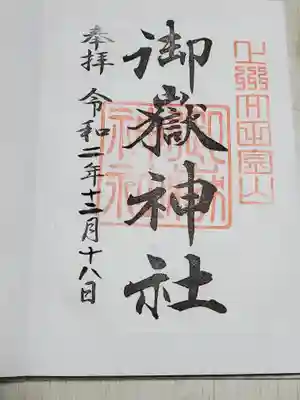 御嶽神社
奉拝 令和二年十二月十八日